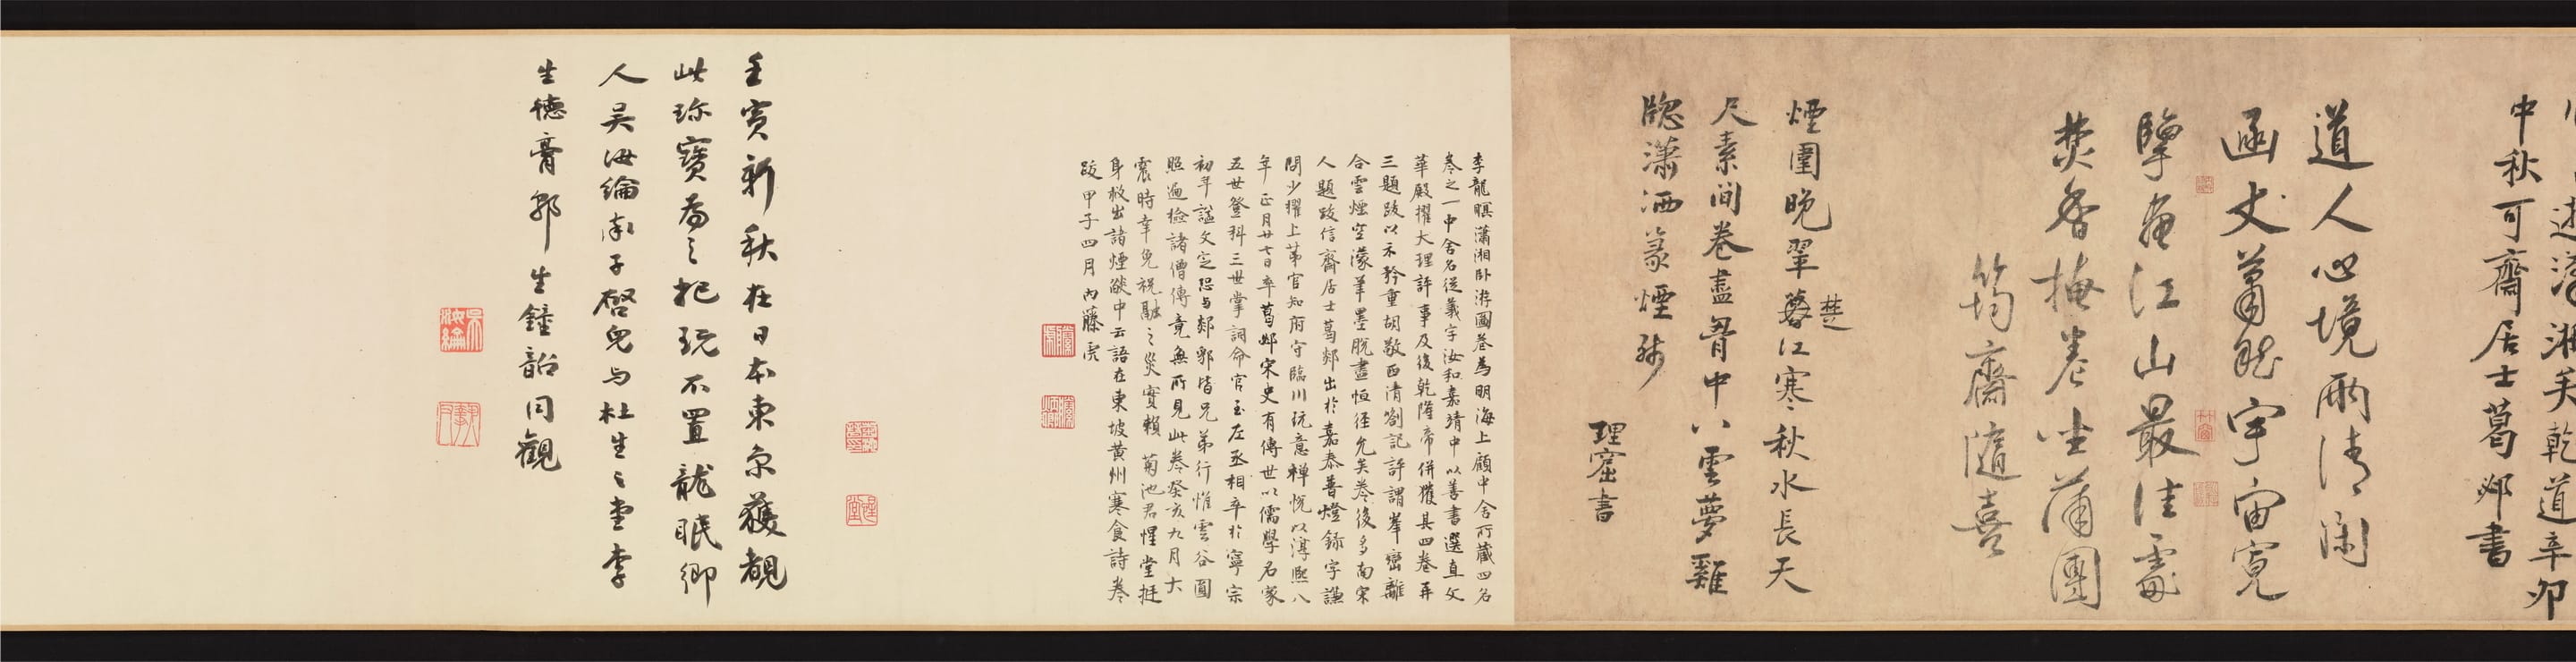 中秋可齋居士葛郯書
道人心境兩清閑
函丈蕭然宇宙寬
擘畫江山最佳處
焚香掩卷坐蒲團
筠齋隨喜
煙圍晚翠
楚
江寒秋水長天
尺素間卷盡胷中八雲夢難
牕瀟洒篆煙殘
理窟書
李龍眠瀟湘卧游圖卷為明海上顧中舍所藏四名
卷之一中舍名從義字汝和嘉靖中以善書選直文
華殿擢大理評事及後乾隆帝併獲其四卷再
三題跋以示矜重胡敬西清劄記評謂峯巒離
合雲煙空濛筆墨脫盡恒徑允矣卷後多南宋
人題跋信齋居士葛郯出於嘉泰普燈錄字謙
問少擢上第官知府守臨川玩意禪悅以淳熙八
年正月廿七日卒葛邲宋史有傳世以儒學名家
五世登科三世掌詞命官至左丞相卒於寧宗
初年謚文定恐與郯郛皆兄弟行惟雲谷圓
照遍檢諸僧傳竟無所見此卷癸亥九月大
震時幸免祝融之災實賴菊池君惺堂挺
身救出諸煙燄中云語在東坡黃州寒食詩卷
跋甲子四月內藤虎
壬寅新秋在日本東京獲覩
此珍寶為之把玩不置龍眠鄉
人吳汝綸率子啓兒與杜生之堂李
生德膏鄒生鐘韶同觀
吳汝綸